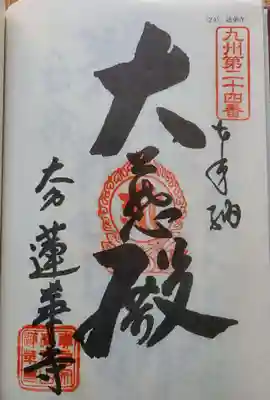 九州第二十四番
奉納
大悲殿
大分
蓮華寺